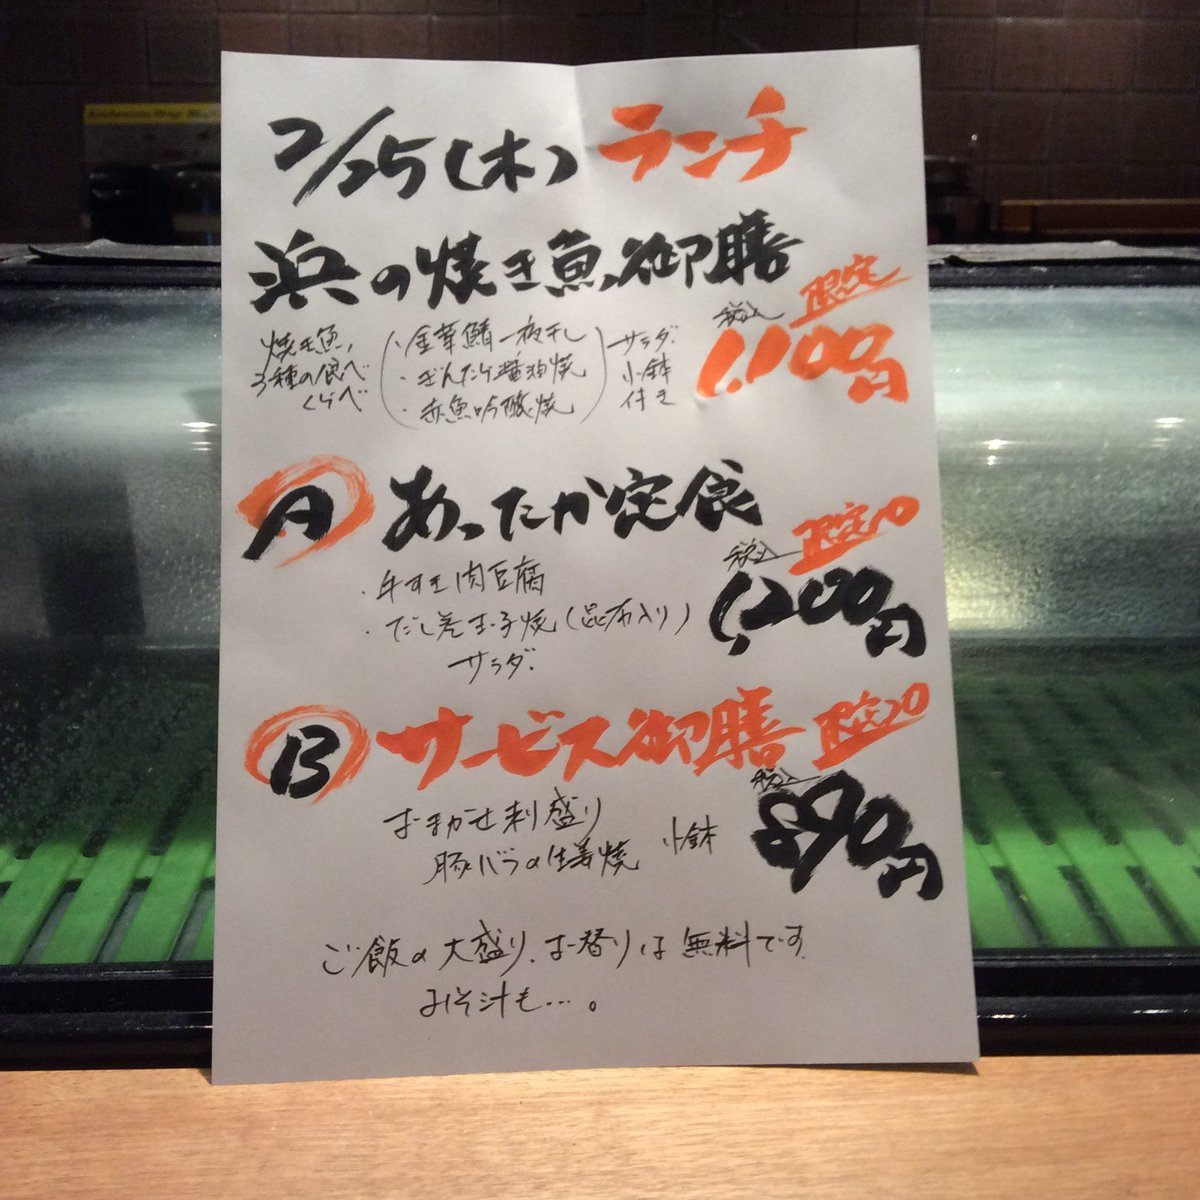 2/25(木) ランチ
浜の焼き魚御膳
限定
税込
1,100円
焼き魚、
3種の食べ
くらべ
・金華鯖一夜干し
・ぎんだら醤油焼
・赤魚吟醸焼
サラダ
小鉢
付き
A あったか定食
限定10
税込
1,200円
・牛すき肉豆腐
・だし巻玉子焼(昆布入り)
サラダ
B サービス御膳 限定20
税込
890円
おまかせ刺盛り
豚バラの生姜焼 小鉢
ご飯の大盛り、お替りは無料です
みそ汁も…。